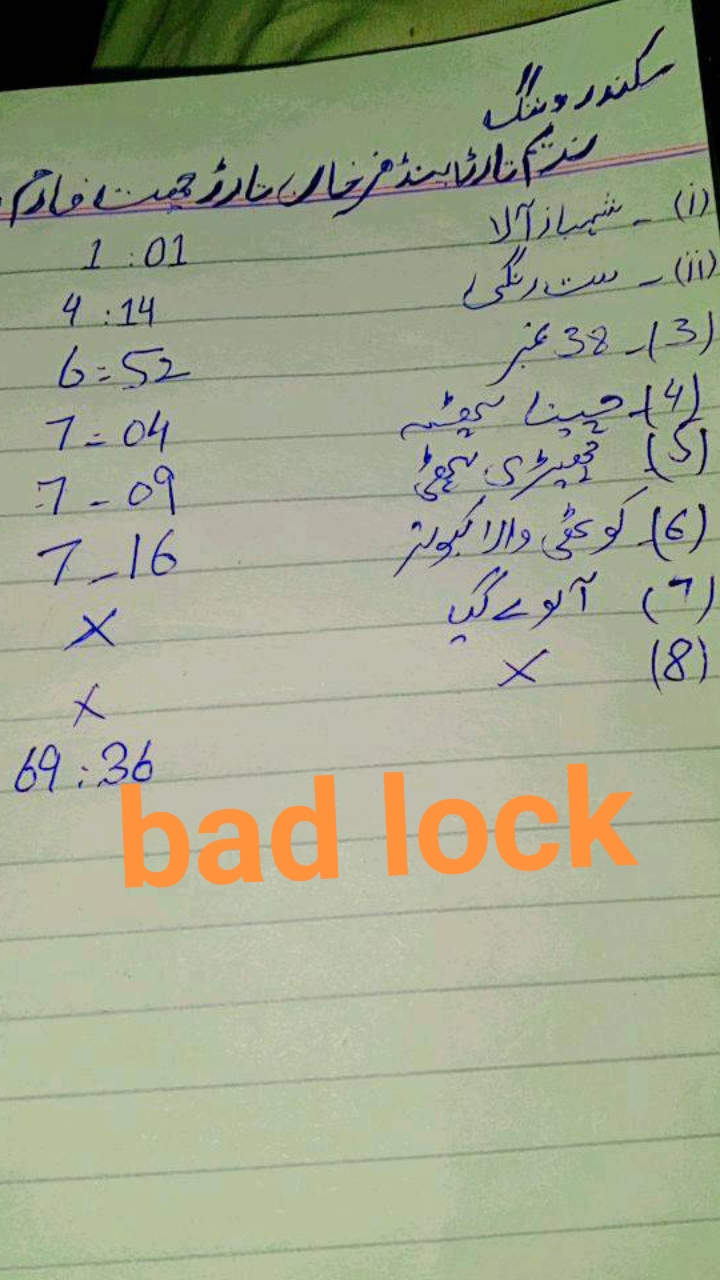 سکندر ونگ
ندیم تارڑ اینڈ فرخان تارڑ چیمہ فارم
(i) - شہباز آلا 1:01
(ii) - ست رنگی 4:14
(3) - 38 نمبر 6=52
(4) - چینا 7=04
(5) چپڑی 7-09
(6) - کوٹھی والا کبوتر 7-16
(7) آلوے گیا ×
(8) × ×
69:36
bad lock